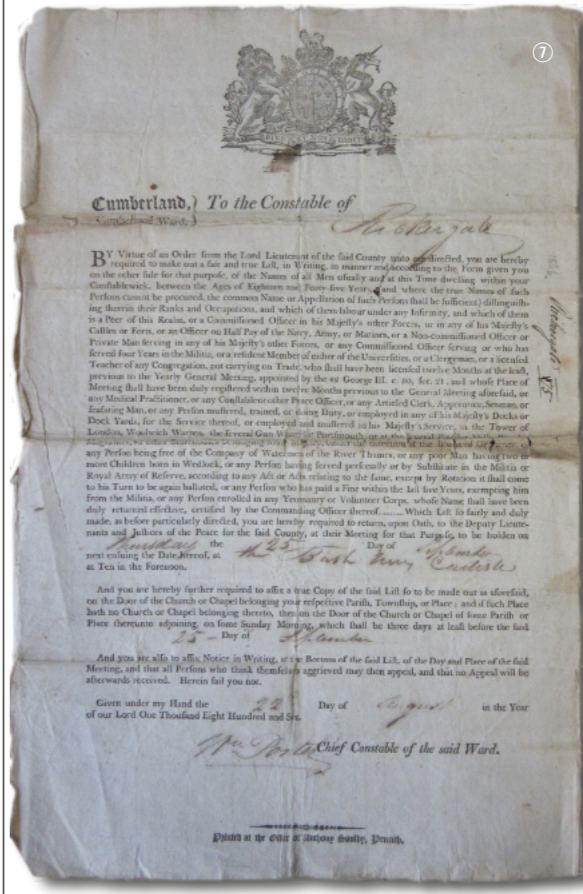 ⑦
Cumberland,} To the Constable of
Cumberland Ward.
Rickergate
BY Virtue of an Order from the Lord Lieutenant of the said County unto me directed, you are hereby
required to make out a fair and true List, in Writing, in manner and according to the Form given you
on the other side for that purpose, of the Names of all Men usually and at this Time dwelling within your
Constablewick, between the Ages of Eighteen and Forty-five Years, and where the true Names of such
Persons cannot be procured, the common Name or Appellation of such Persons shall be sufficient) distinguish-
ing therein their Ranks and Occupations, and which of them labour under any Infirmity, and which of them
is a Peer of this Realm, or a Commissioned Officer in his Majesty's other Forces, or in any of his Majesty's
Castles or Forts, or an Officer on Half Pay of the Navy, Army, or Marines, or a Non-commissioned Officer or
Private Man serving in any of his Majesty's other Forces, or any Commissioned Officer serving or who has
served four Years in the Militia, or a resident Member of either of the Universities, or a Clergyman, or a licensed
Teacher of any Congregation, not carrying on Trade, who shall have been licensed twelve Months at the least,
previous to the Yearly General Meeting, appointed by the George III. and whose Place of
Meeting shall have been duly registered within twelve Months previous to the General Meeting aforesaid, or
any Medical Practitioner, or any Constable or other Peace Officer, or any Articled Clerk, Apprentice, Seaman, or
seafaring Man, or any Person mustered, trained, or doing Duty, or employed in any of his Majesty's Docks or
Dock Yards, for the Service thereof, or employed and mustered in his Majesty's Service, in the Tower of
London, Woolwich Warren, the several Gun Wharfs at Portsmouth, or at the several
any Person being free of the Company of Watermen of the River Thames, or any poor Man having two or
more Children born in Wedlock, or any Person having served personally or by Substitute in the Militia or
Royal Army of Reserve, according to any Act or Acts relating to the same, except by Rotation it shall come
to his Turn to be again balloted, or any Person who has paid a Fine within the last five Years, exempting him
from the Militia, or any Person enrolled in any Yeomanry or Volunteer Corps, whose Name shall have been
duly returned effective, certified by the Commanding Officer thereof Which List so fairly and duly
made, as before particularly directed, you are hereby required to return, upon Oath, to the Deputy Lieute-
nants and Justices of the Peace for the said County, at their Meeting for that Purpose, to be holden on
Thursday the 25 Day of September
next ensuing the Date hereof, at the Bush Carlisle
at Ten in the Forenoon.
And you are hereby further required to affix a true Copy of the said List so to be made out as aforesaid,
on the Door of the Church or Chapel belonging your respective Parish, Township, or Place; and if such Place
hath no Church or Chapel belonging thereto, then on the Door of the Church or Chapel of some Parish or
Place thereunto adjoining, on some Sunday Morning, which shall be three days at least before the said
25 Day of September
And you are also to affix Notice in Writing, at the Bottom of the said List, of the Day and Place of the said
Meeting, and that all Persons who think themselves aggrieved may then appeal, and that no Appeal will be
afterwards received. Herein fail you not.
Given under my Hand the 22 Day of August in the Year
of our Lord One Thousand Eight Hundred and Six.
Wm Porter Chief Constable of the said Ward.
Printed at the Office of Anthony Soulby, Penrith.
Rickergate